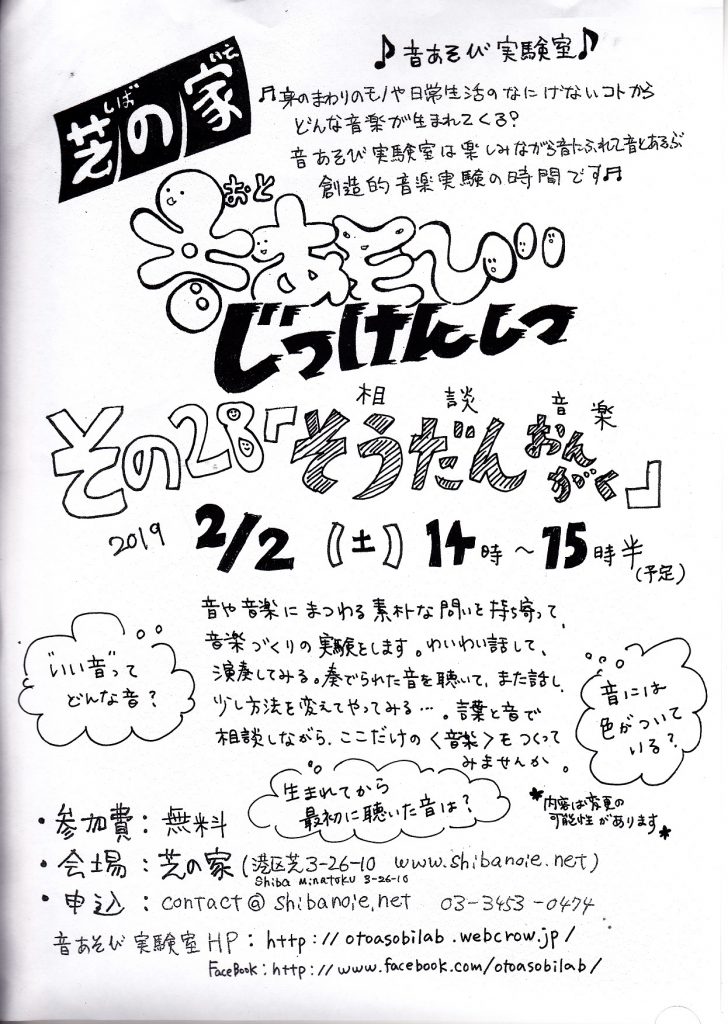 しば いえ
芝の家
♪音あそび実験室♪
♬身のまわりのモノや日常生活のなにげないコトから
どんな音楽が生まれてくる?
音あそび実験室は楽しみながら音にふれて音とあそぶ
創造的音楽実験の時間です♬
おと
音あそび
じっけんしつ
相談 音楽
その28「そうだんおんがく」
2019 2/2 (土) 14時~15時半
(予定)
音や音楽にまつわる素朴な問いを持ち寄って、
音楽づくりの実験をします。わいわい話して、
演奏してみる。奏でられた音を聴いて、また話し、
少し方法を変えてやってみる…。言葉と音で
相談しながら、ここだけの〈音楽〉をつくって
みませんか。
"いい音"って
どんな音?
音には
色がついて
いる?
生まれてから
最初に聴いた音は?
*内容は変更の
可能性があります*
・参加費:無料
・会場:芝の家(港区芝3-26-10 www.shibanoie.net)
Shiba Minatoku 3-26-10
・申込:contact@shibanoie.net 03-3453-0474
音あそび実験室HP:http://otoasobilab.webcrow.jp/
FaceBook:http://www.facebook.com/otoasobilab/